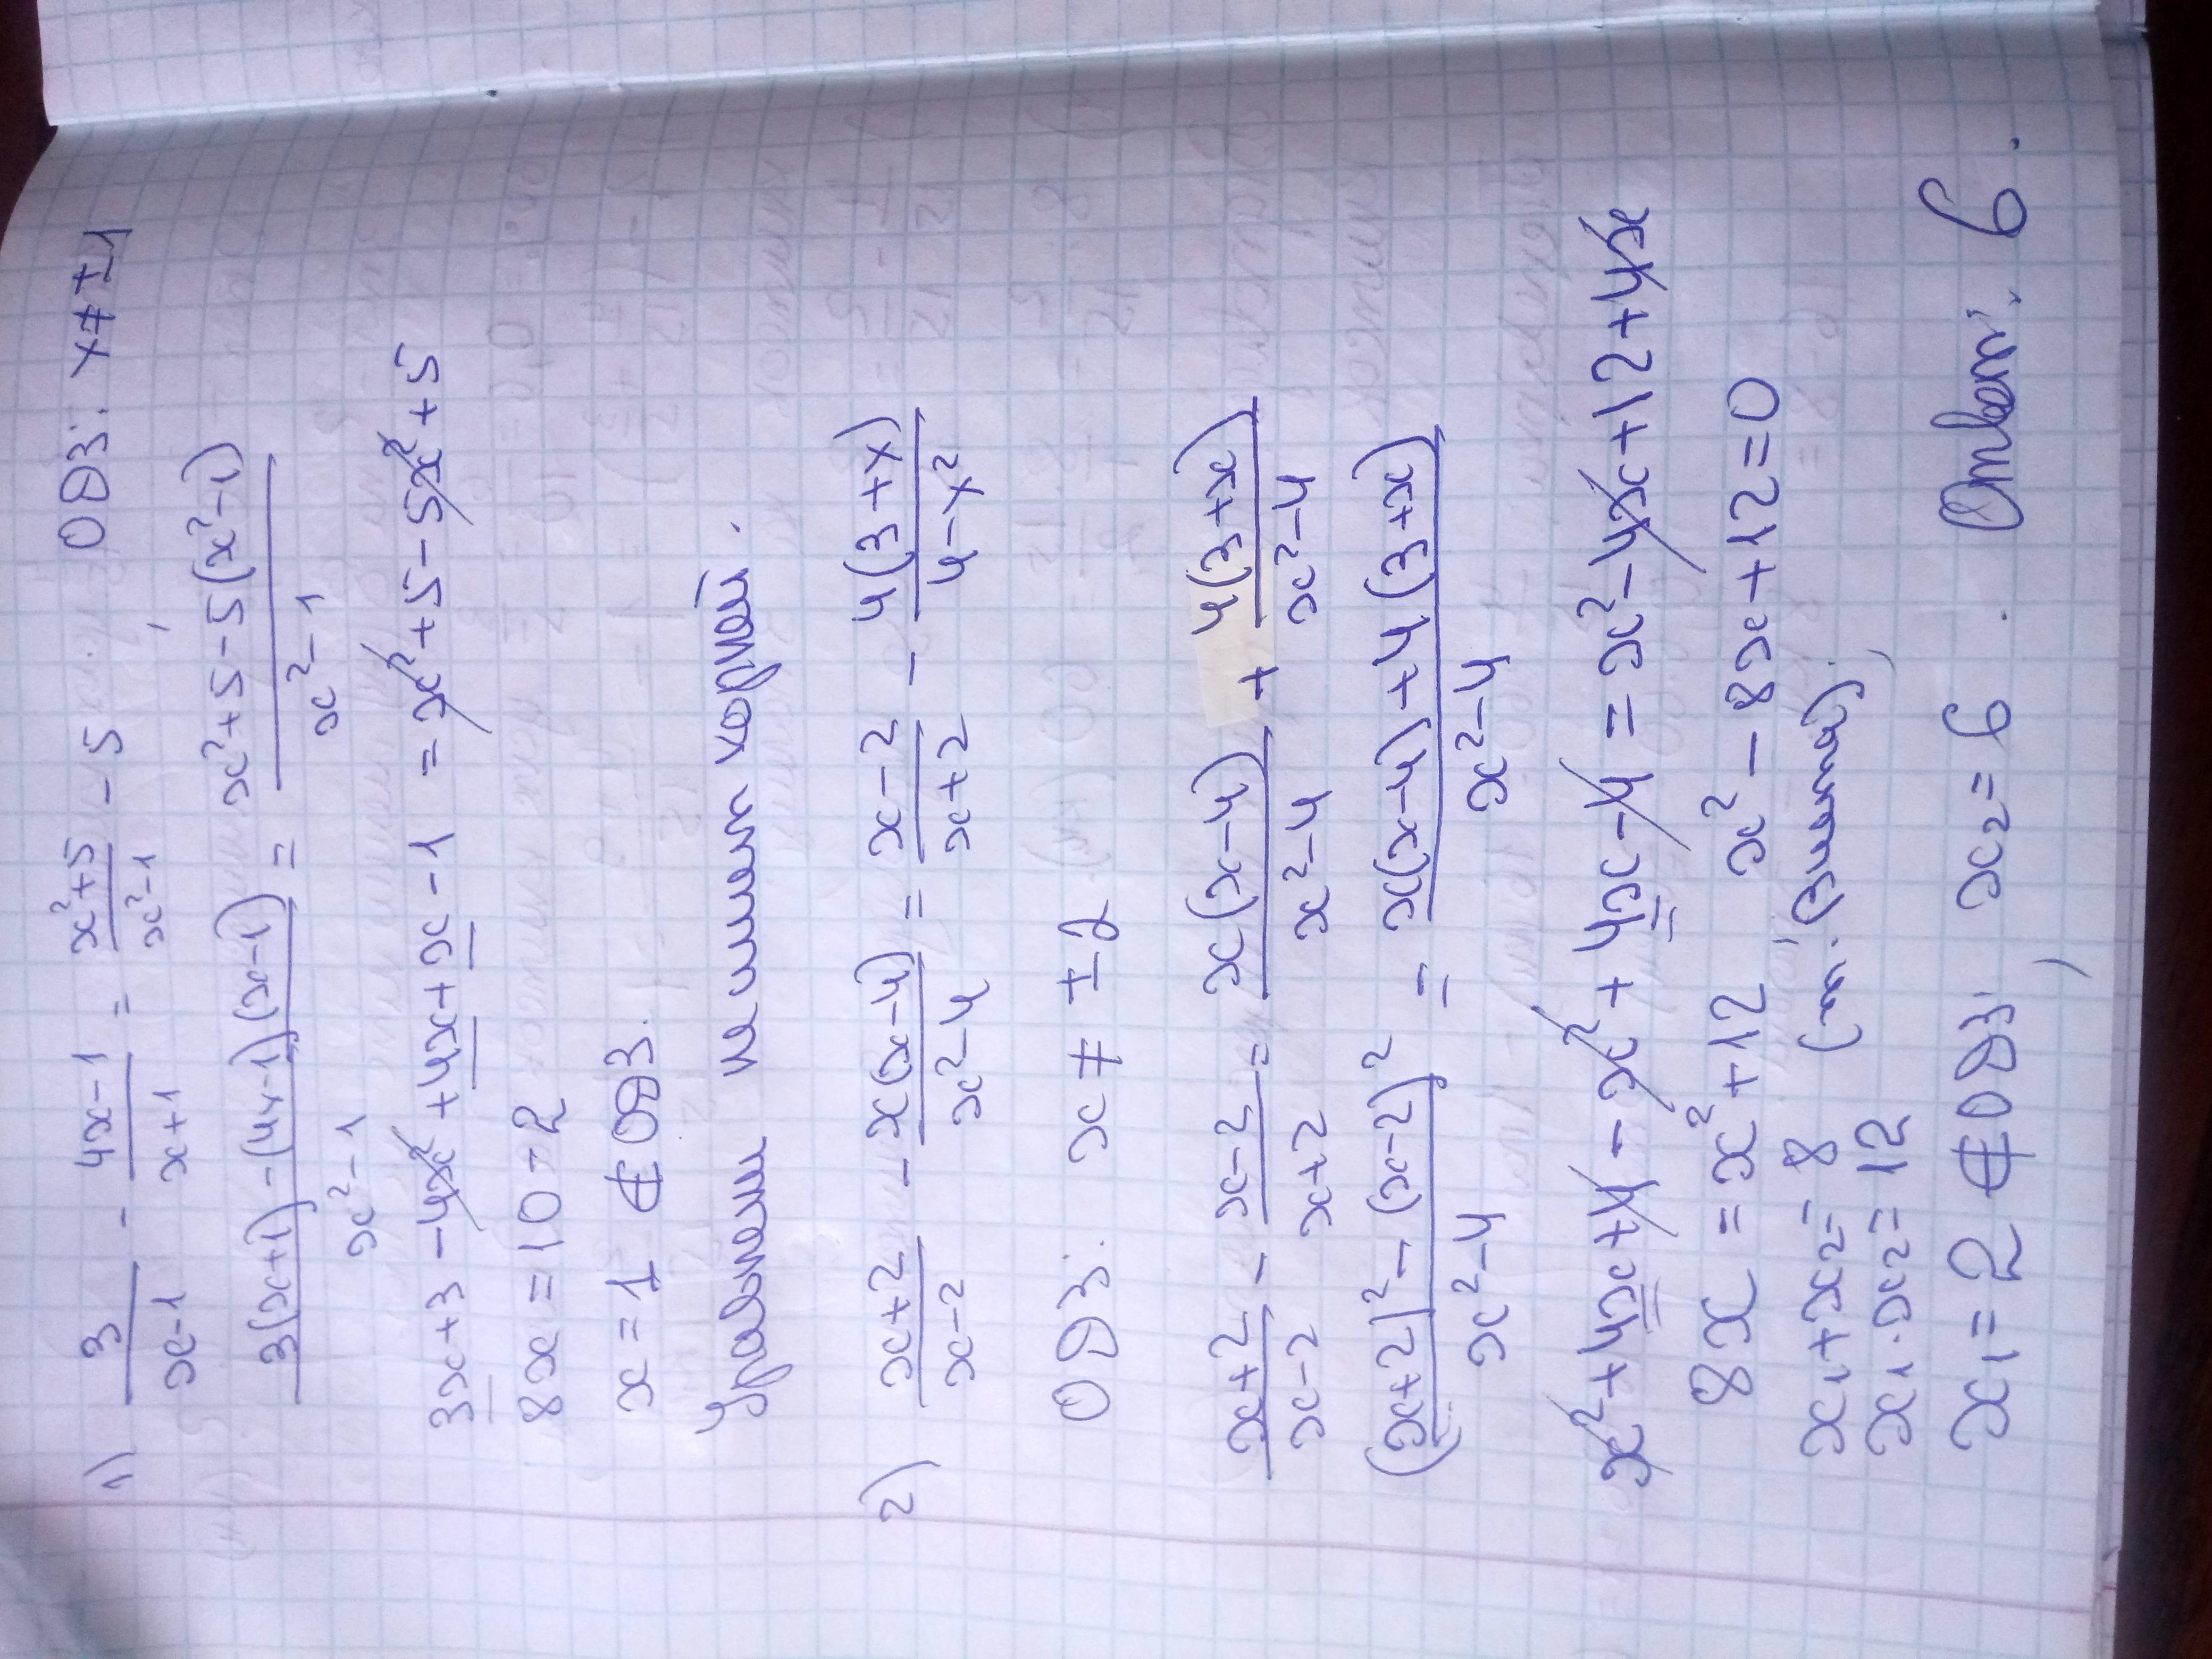 1) 3/(x-1) - (4x-1)/(x+1) = (x²+5)/(x²-1) - 5 ОДЗ: x ≠ ±1
(3(x+1)-(4x-1)(x-1))/(x²-1) = (x²+5-5(x²-1))/(x²-1)
3x+3-4x²+4x+x-1 = x²+5-5x²+5
8x = 10-2
x = 1 ∉ ОДЗ.
Уравнение не имеет корней.
2) (x+2)/(x-2) - x(x-4)/(x²-4) = (x-2)/(x+2) - 4(3+x)/(4-x²)
ОДЗ: x ≠ ±2
(x+2)/(x-2) - (x-2)/(x+2) = x(x-4)/(x²-4) + 4(3+x)/(x²-4)
((x+2)²-(x-2)²)/(x²-4) = (x(x-4)+4(3+x))/(x²-4)
x²+4x+4-x²+4x-4 = x²-4x+12+4x
8x = x²+12 x²-8x+12=0
x₁+x₂= 8 (т. Виета).
x₁·x₂= 12
x₁=2 ∉ ОДЗ, x₂=6. Ответ: 6.